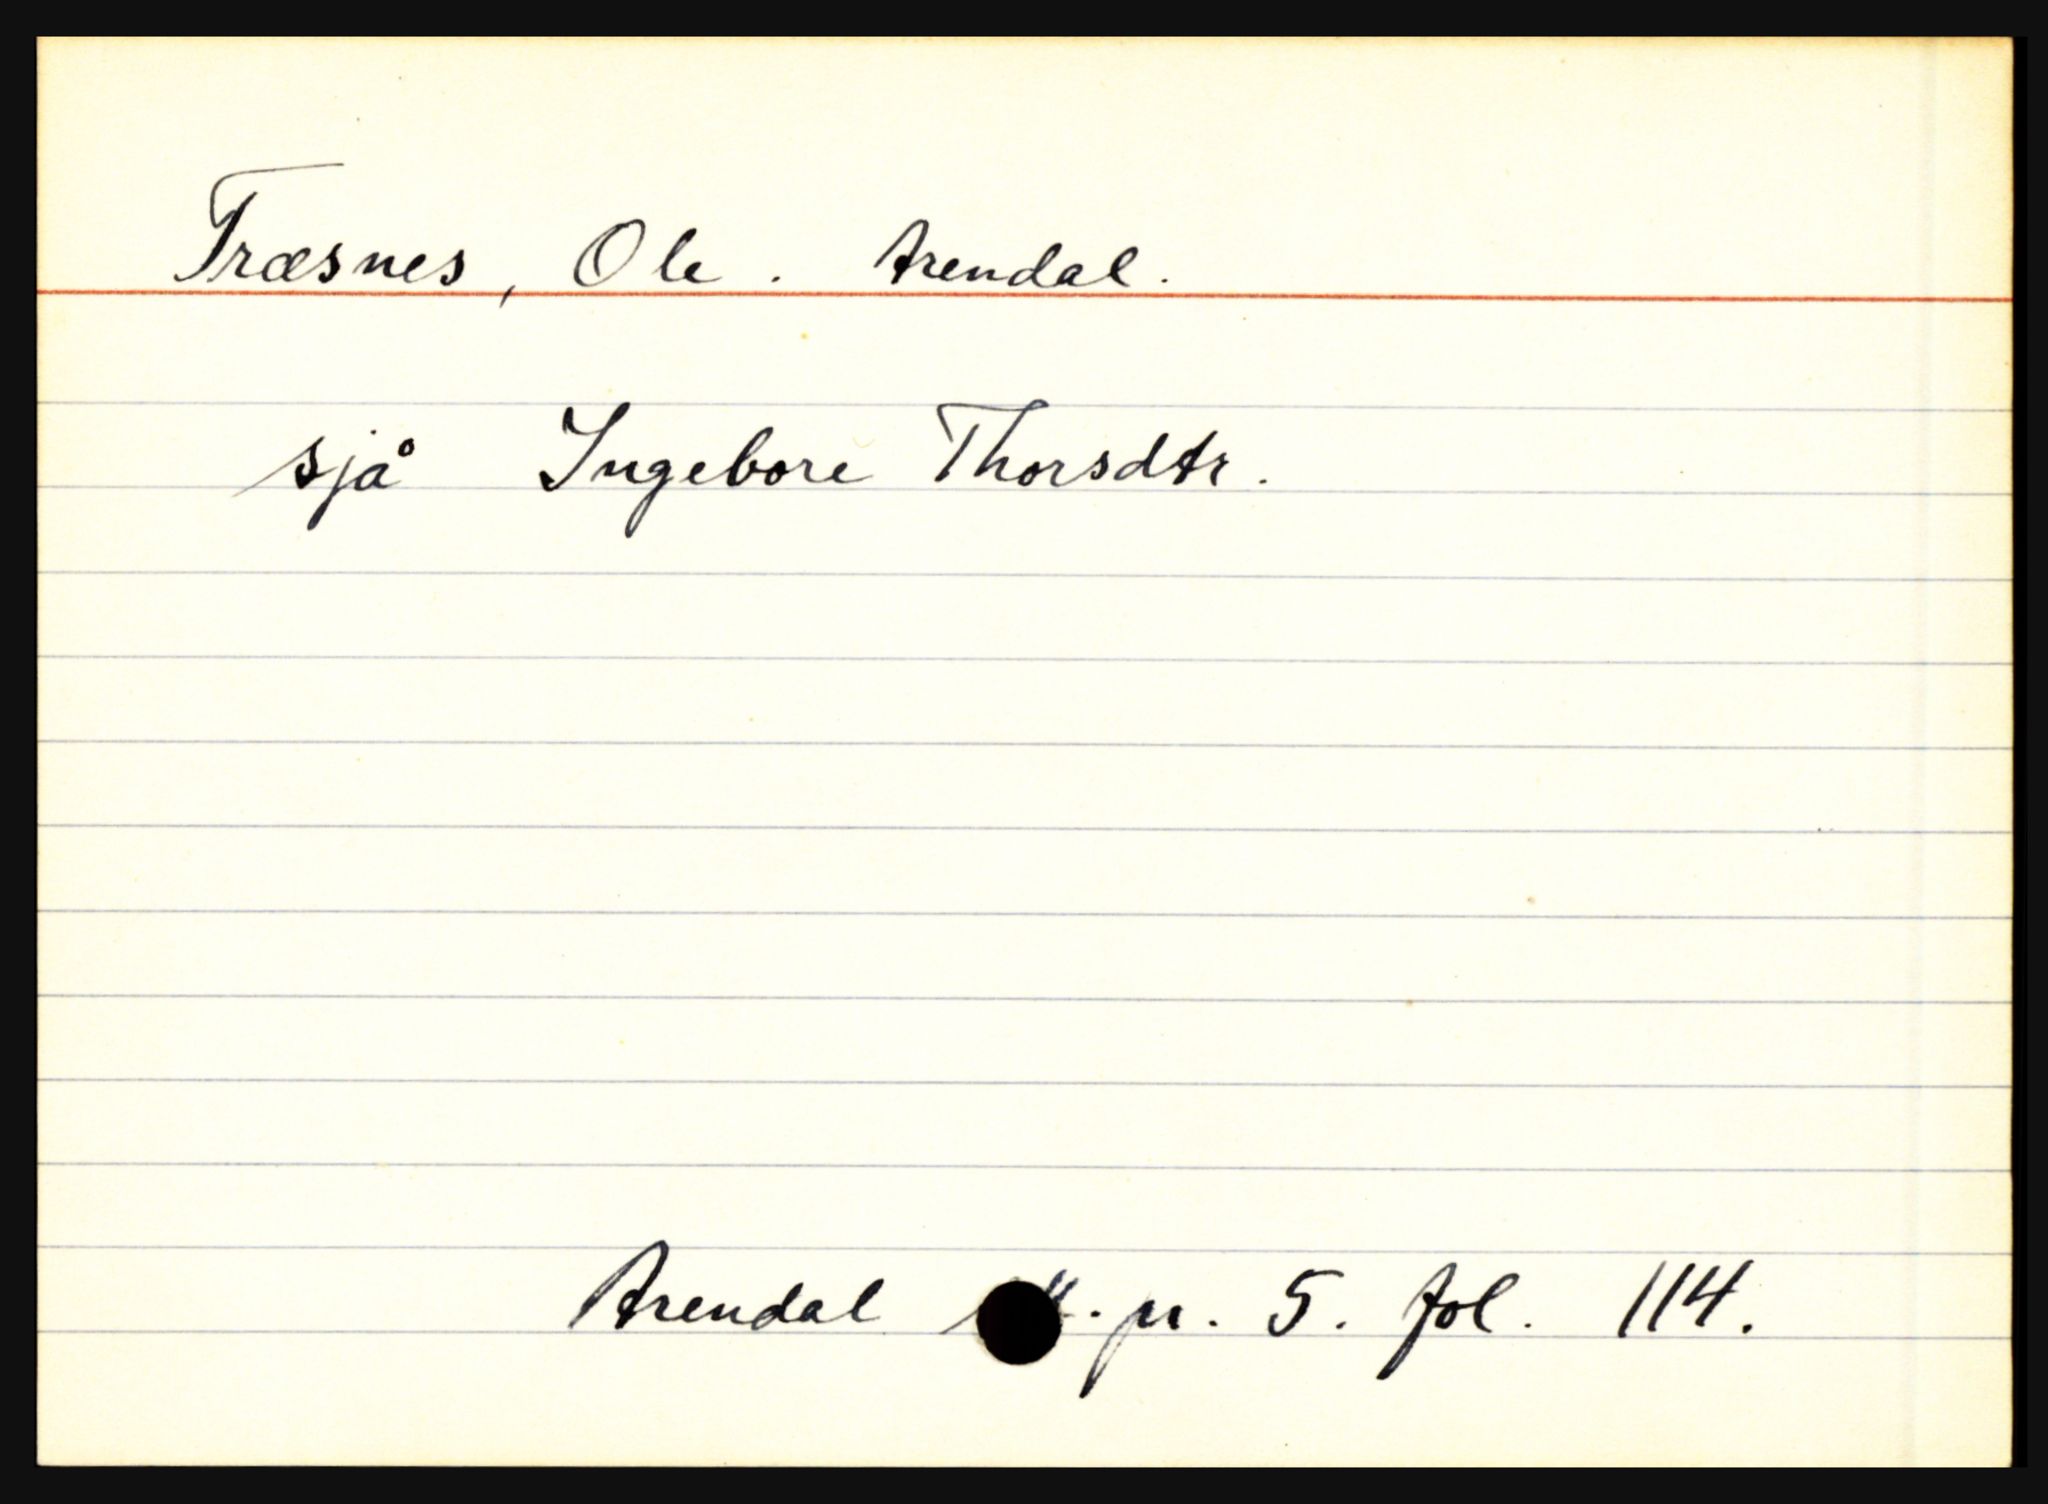 Træsnes, Ole. Arendal.
sjå Ingebore Thorsdtr.
Arendal pr. 5. fol. 114.